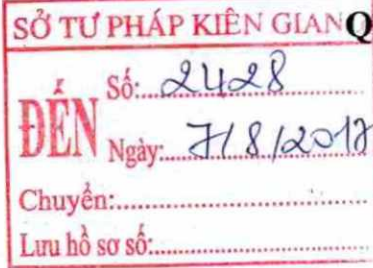 SỞ TƯ PHÁP KIÊN GIANQ
ĐẾN
Số:.....2428
Ngày:.....7/8/2017
Chuyển:.....
Lưu hồ sơ số:.....